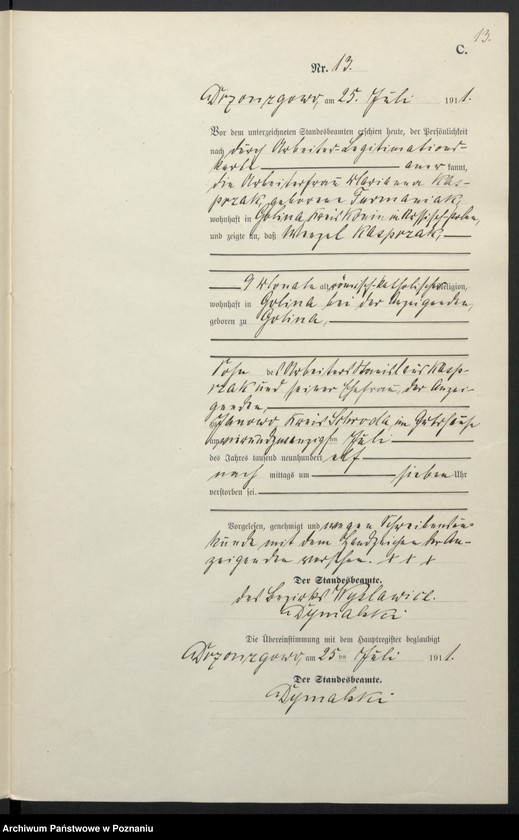 13.
C.
Nr. 13.
am 25. Juli 1911.
Vor dem unterzeichneten Standesbeamten erschien heute, der Persönlichkeit
nach durch Arbeiter-Legitimations-
karte kannt,
die Arbeiterfrau Marianna Kas-
przak, geborene Furmaniak,
wohnhaft in Golina, Kreis Konin in Russisch-Polen,
und zeigte an, daß Wenzel Kasprzak,
9 Monate alt, römisch-katholischer Religion,
wohnhaft in Golina bei der Anzeigenden,
geboren zu Golina,
Sohn des Arbeiters Stanislaus Kasp-
rzak und seiner Ehefrau, der Anzei-
genden,
zu Janowo Kreis Schroda, im Gutshause
am vierundzwanzigsten Juli
des Jahres tausend neunhundert elf
nach mittags um sieben Uhr
verstorben sei.
Vorgelesen, genehmigt und wegen Schreibensun-
kunde mit dem Handzeichen der An-
zeigenden versehen. + + +
Der Standesbeamte.
des Bezirks
Dymalski
Die Übereinstimmung mit dem Hauptregister beglaubigt
am 25 ten Juli 1911.
Der Standesbeamte.
Dymalski
Archiwum Państwowe w Poznaniu